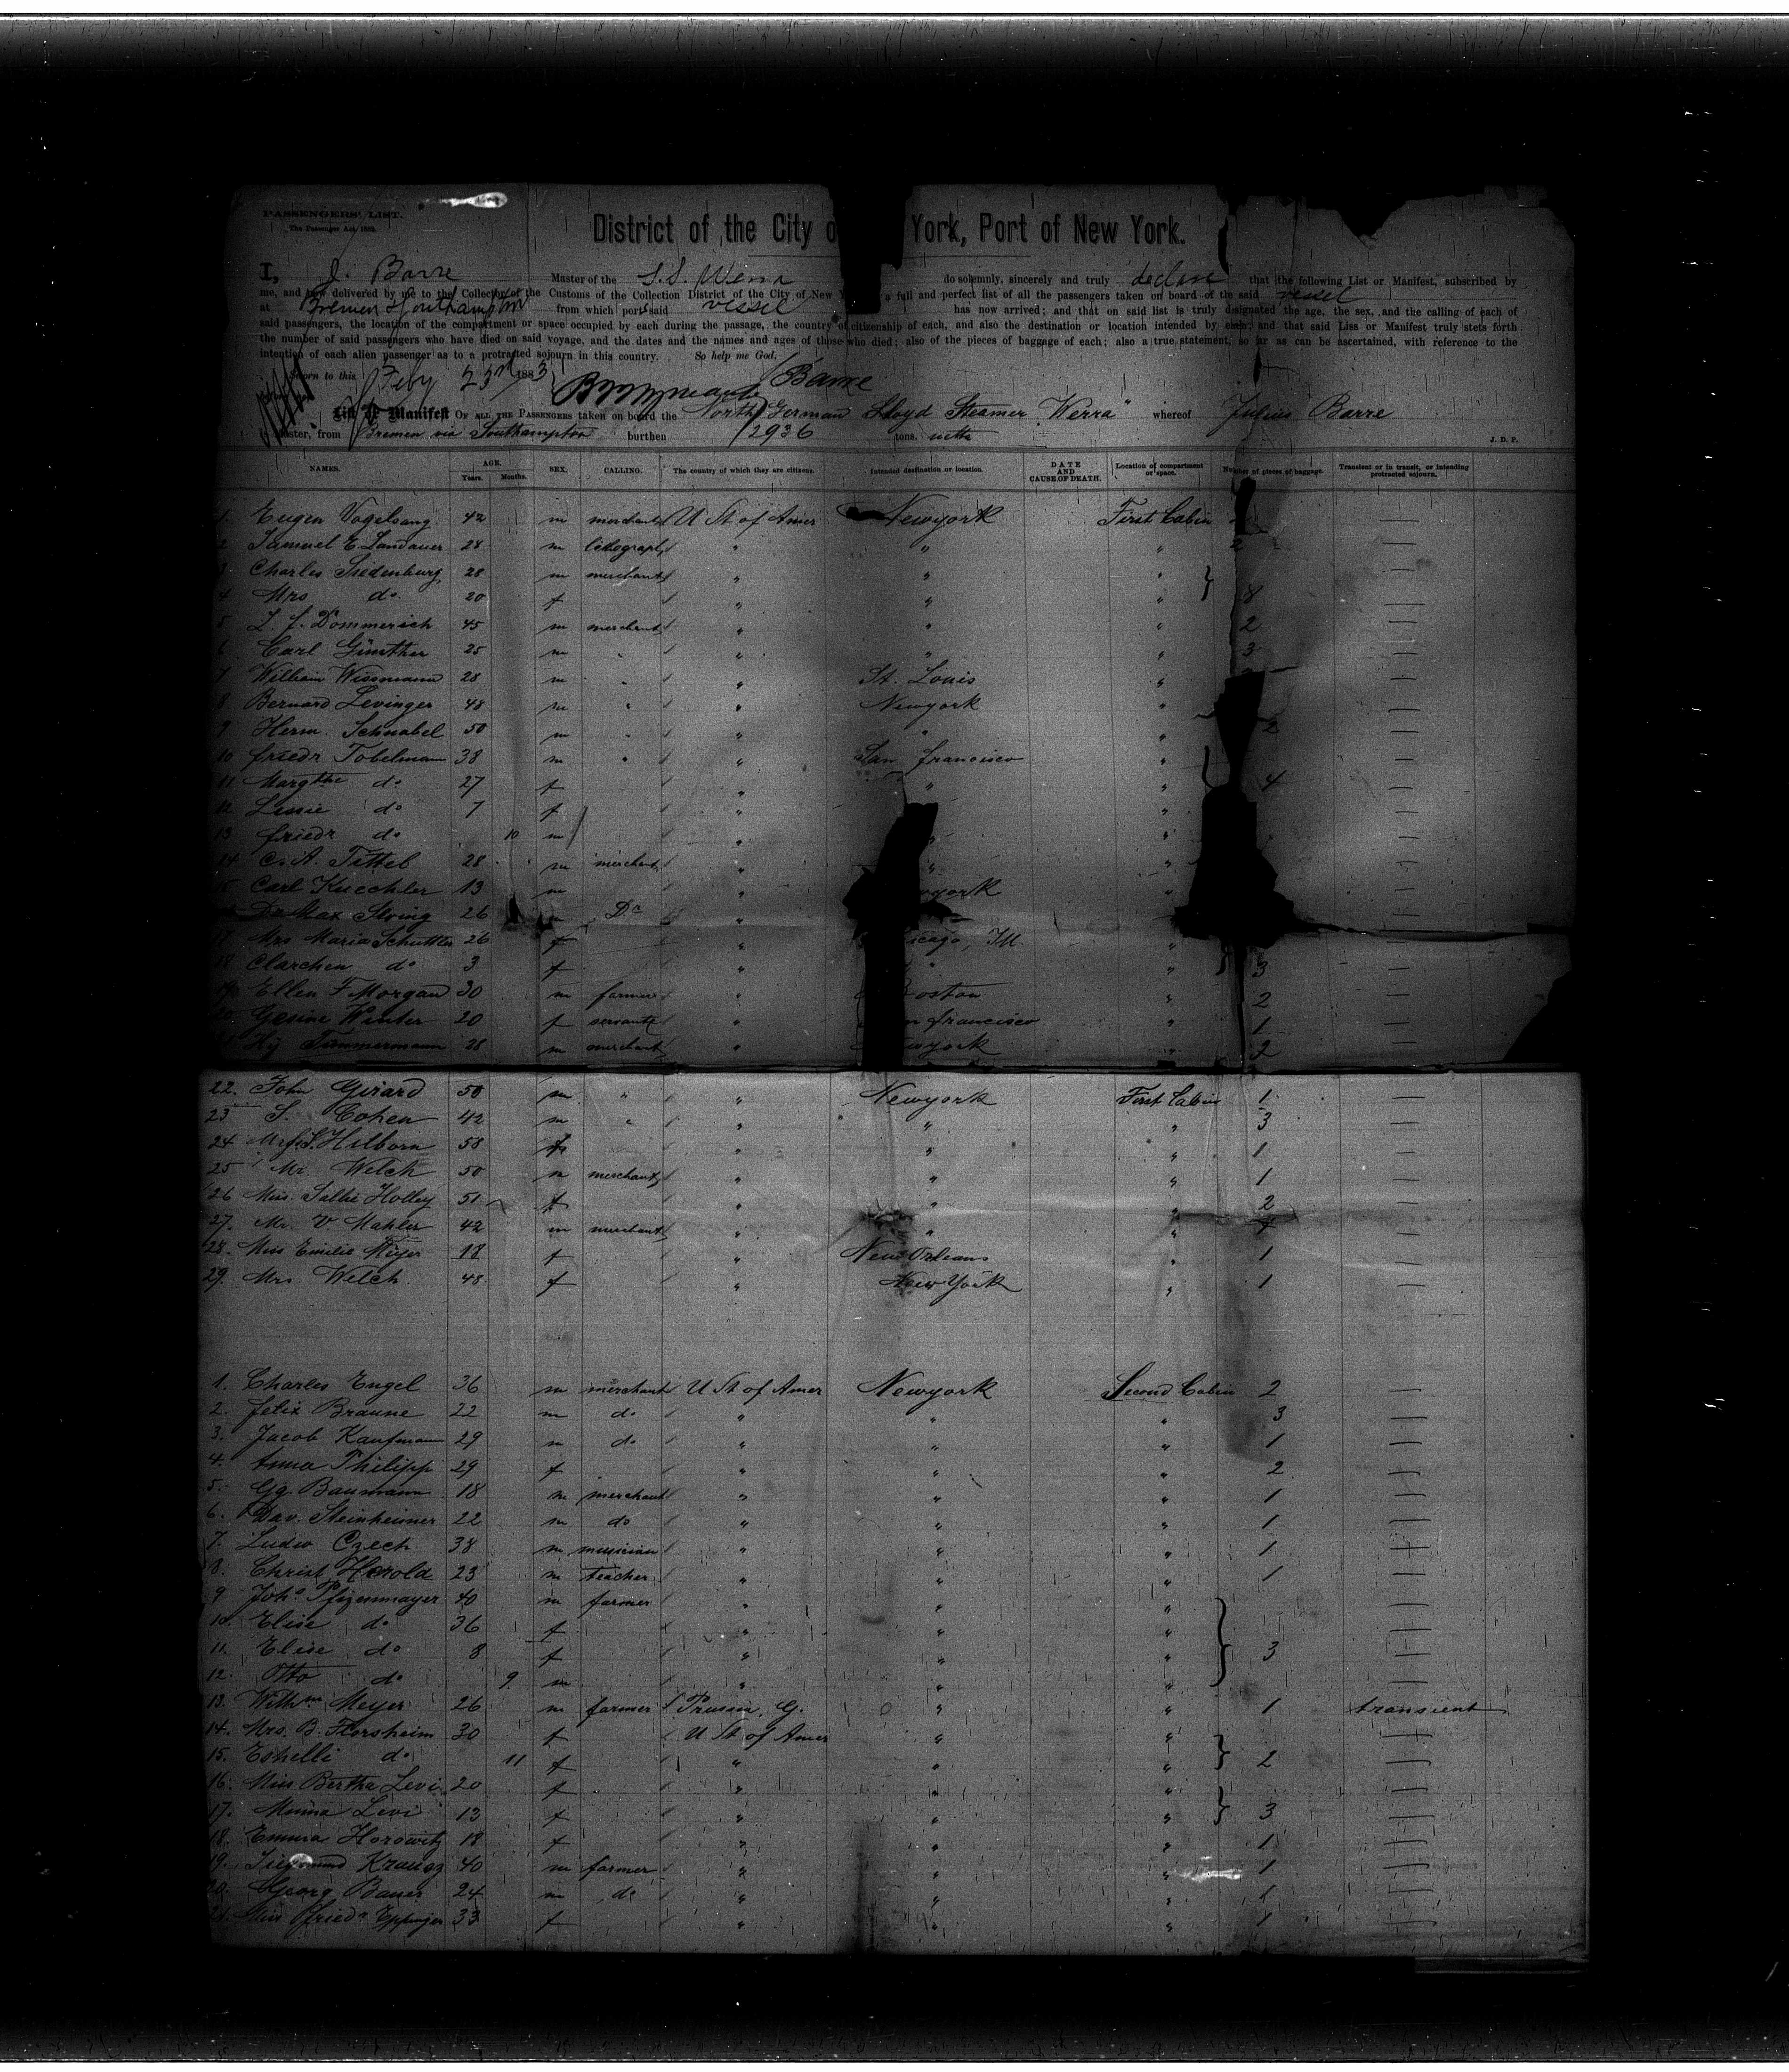 PASSENGERS' LIST.
The Passenger Act, 1882.
District of the City o York, Port of New York.
I, J. Barre Master of the S.S. Werra do solemnly, sincerely and truly declare that the following List or Manifest, subscribed by
me, and now delivered by me to the Collector of the Customs of the Collection District of the City of New a full and perfect list of all the passengers taken on board of the said vessel
at Bremen & Southampton from which port said vessel has now arrived; and that on said list is truly disignated the age, the sex, and the calling of each of
said passengers, the location of the compartment or space occupied by each during the passage, the country of citizenship of each, and also the destination or location intended by each; and that said Liss or Manifest truly stets forth
the number of said passengers who have died on said voyage, and the dates and the names and ages of those who died; also of the pieces of baggage of each; also a true statement, so far as can be ascertained, with reference to the
intention of each alien passenger as to a protracted sojourn in this country. So help me God.
Sworn to this Feby 23rd 1883 Barre
List or Manifest OF ALL THE PASSENGERS taken on board the North German Lloyd Steamer "Werra" whereof Julius Barre
is Master, from Bremen via Southampton burthen 2936 tons. netto
J. D. P.
NAMES. AGE. Years. Months. SEX. CALLING. The country of which they are citizens. Intended destination or location. DATE AND CAUSE OF DEATH. Location of compartment or space. Number of pieces of baggage. Transient or in transit, or intending protracted sojourn.
1. Eugen Vogelsang 42 m merchant U St of Amer Newyork First Cabin —
2 Samuel E Landauer 28 m lithograph " " " 2 —
3 Charles Siedenburg 28 m merchant " " " —
4 Mrs do. 20 f " " " 8 —
5 L. f. Dommerich 45 m merchant " " " 2 —
6 Carl Günther 25 m " " " " 3 —
7 William Wissmann 28 m " " St. Louis " —
8 Bernard Levinger 48 m " " Newyork " —
9 Herm. Schnabel 50 m " " " " 2 —
10 friedr Tobelmann 38 m " " San francisco " —
11 Margthe do 27 f " " " 4 —
12 Lessie do 7 f " " —
13 friedr do 10 m " " " —
14 C. A. Tittel 28 m merchant " " " —
15 Carl Kuechler 13 m " york " —
Dr Max Sloing 26 m Dr " " —
17 Mrs Maria Schuttler 26 f " icago, Ill. " —
18 Clarchen do 3 f " " " 3 —
19 Ellen F Morgan 30 m farmer " Boston " 2 —
20 Gesine Winter 20 f servante " n francisco " 1 —
Hy Timmermann 28 m merchant " wyork " 2 —
22. John Girard 50 m " " Newyork First Cabin 1 —
23 S. Cohen 42 m " " " " 3 —
24 Mrs S. Hilborn 58 f " " " 1 —
25 Mr. Welch 50 m merchant " " " 1 —
26 Miss. Sallie Holley 51 f " " " 2 —
27. Mr. V. Mahler 42 m merchant " " " 7 —
28. Miss Emilie Meyer 18 f " New Orleans " 1 —
29. Mrs Welch. 48 f " New York " 1 —
1. Charles Engel 36 m merchant U St of Amer Newyork Second Cabin 2 —
2. Felix Braune 22 m do " " " 3 —
3. Jacob Kaufmann 29 m do " " " 1 —
4. Anna Philipp 29 f " " " 2 —
5. Gg. Baumann 18 m merchant " " " 1 —
6. Dav. Steinheimer 22 m do " " " 1 —
7. Ludw Czech 38 m musician " " " 1 —
8. Christ Herold 23 m teacher " " " 1 —
9 Joh. Pfizenmayer 40 m farmer " " " —
10. Elise do 36 f " " " —
11. Elise do 8 f " " " 3 —
12. Otto do 9 m " " " —
13. Wilhm Meyer 26 m farmer Prussia, G. " " 1 transient
14. Mrs. B. Florsheim 30 f U St of Amer " " —
15. Eshelli do 11 f " " " 2 —
16. Miss Bertha Levi 20 f " " " —
17. Minna Levi 13 f " " " 3 —
18. Emma Horowitz 18 f " " " 1 —
19. Siegmund Krausz 40 m farmer " " " 1 —
20. Georg Bauer 24 m do " " " 1 —
21. Miss friedr Eppinger 33 f " " " 1 —